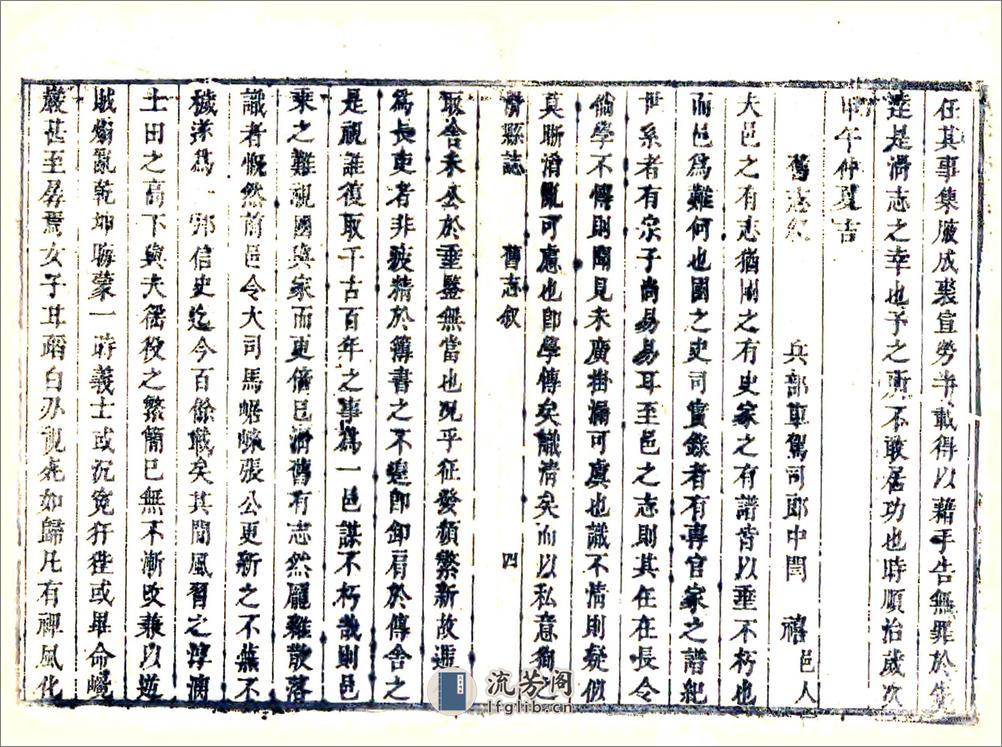 任其事集腋成裘宣勞半載得以藉手告無罪於先
達是濟志之幸也予之所不敢居功也時順治歲次
甲午仲夏吉
舊志叙
兵部車駕司郎中閆禧邑人
大邑之有志猶國之有史家之有譜皆以垂不朽也
而邑為難何也國之史司實錄者有專官家之譜紀
世系者有宗子尚易易耳至邑之志則其任在長令
倘學不博則聞見未廣掛漏可虞也識不情則疑似
莫晰淆亂可慮也即學博矣識清矣而以私意衡
濟縣誌 舊志叙 四
取舍未公於垂鑒無當也况乎征發頻繁新故遞
為長吏者非疲精於簿書之不遑即卸肩於傳舍之
是視誰復取千古百年之事為一邑謀不朽哉則邑
乘之難視國與家而更倍邑濟舊有志然龎雜散落
識者慨然前邑令大司馬崌崍張公更新之不蕪不
穢遂為一邦信史迄今百餘職矣其間風習之淳漓
土田之高下與夫徭役之繁簡已無不漸改兼以遊
賊煽亂乾坤晦蒙一時義士或沉寃犴狴或畢命巉
巖甚至孱焉女子耳蹈白刃視死如歸凡有裨風化
流芳阁
lfglib.cn